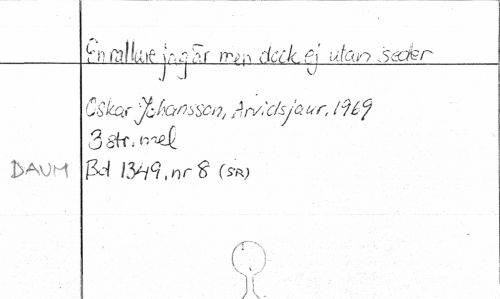 En rallare jag är men dock ej utan seder
Oskar Johansson, Arvidsjaur, 1969
3 str. mel
DAUM Bd 1349, nr 8 (SR)